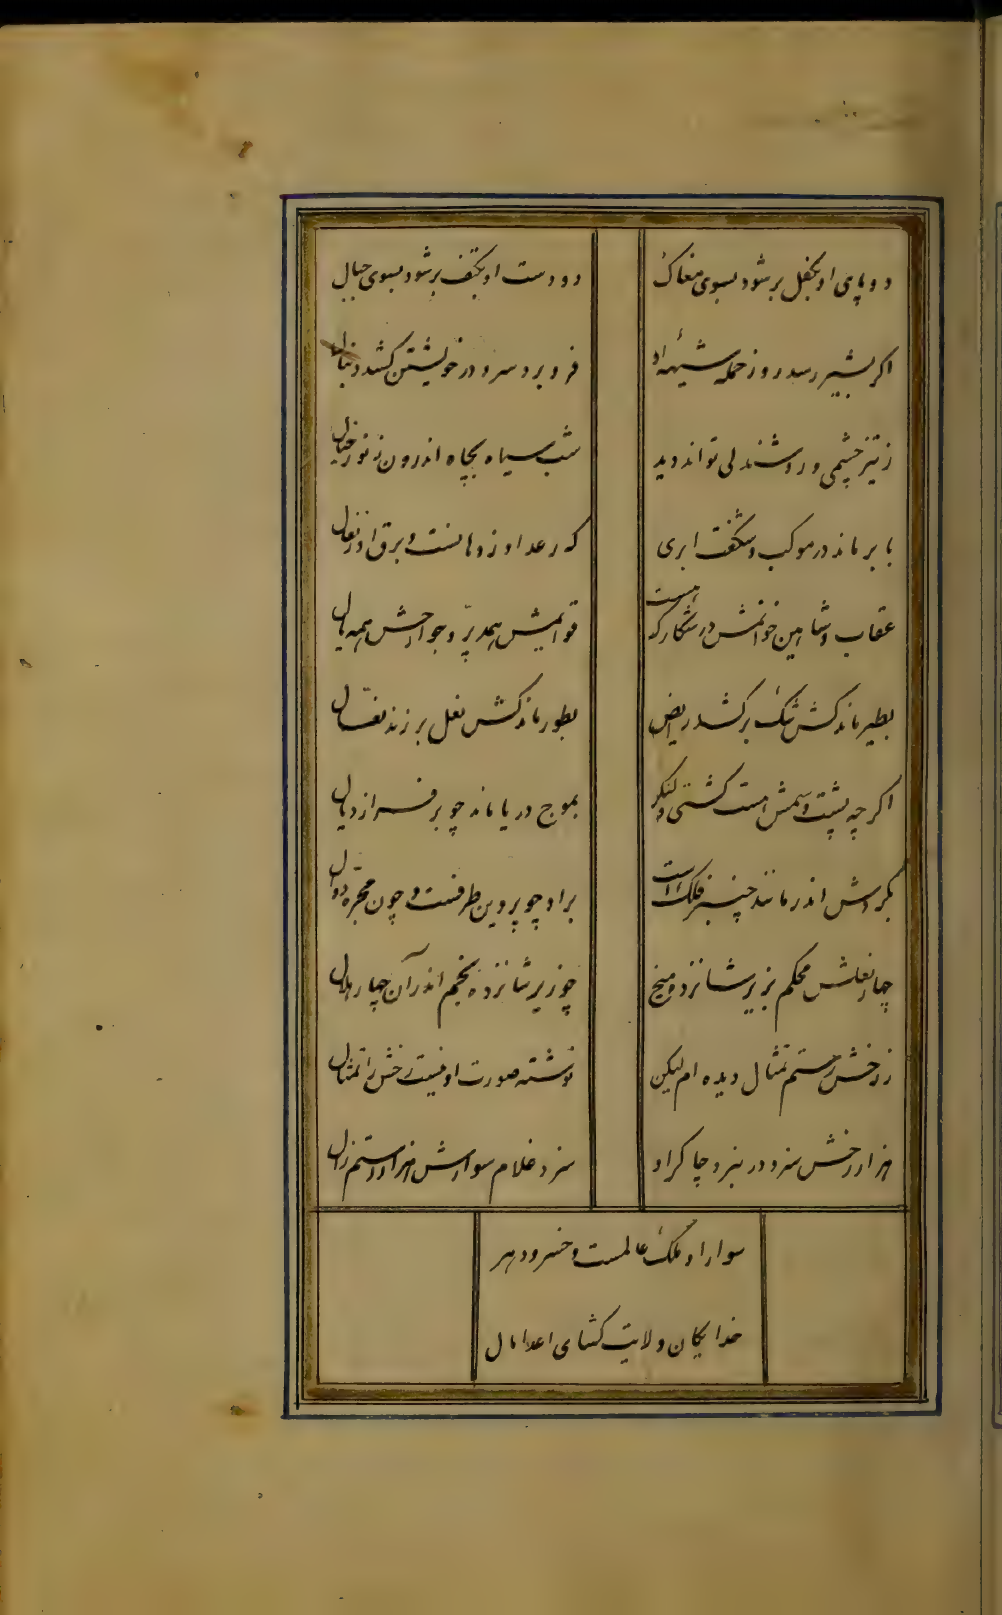 دو پای او بکفل بر شود بسوی مغاک
دو دست او بکتف بر شود بسوی جبال
اگر بشیر رسد روز حمله شیهه او
فرو برد سر و در خویشتن کشد دنبال
ز تیز چشمی و روشندلی تواند دید
شب سیاه بچاه اندرون ز نور خیال
بابر ماند در موکب و شگفت ابری
که رعد او ز دهانست و برق او ز نعال
عقاب و شاهین خوانمش در شکار که هست
قوائمش همه پر و جوارحش همه بال
بطیر ماند کش تنگ برکشد رایض
بطور ماند کش نعل برزند نعال
اگر چه پشت و سمش هست کشتی و لنگر
بموج دریا ماند چو برفرازد یال
بگردش اندر مانند چنبر فلک است
براو چو پروین طرفست و چون مجره دوال
چهار نعلش محکم بزیر شانزده میخ
چو زیر شانزده نجم اندر آن چهار هلال
ز رخش رستم تمثال دیده ام لیکن
نوشته صورت او نیست رخش را تمثال
هزار رخش سزد در نبرد چاکر او
سزد غلام سوارش هزار رستم زال
سوار او ملک عالمست و خسرو دهر
خدایگان ولایت کشای اعدا مال